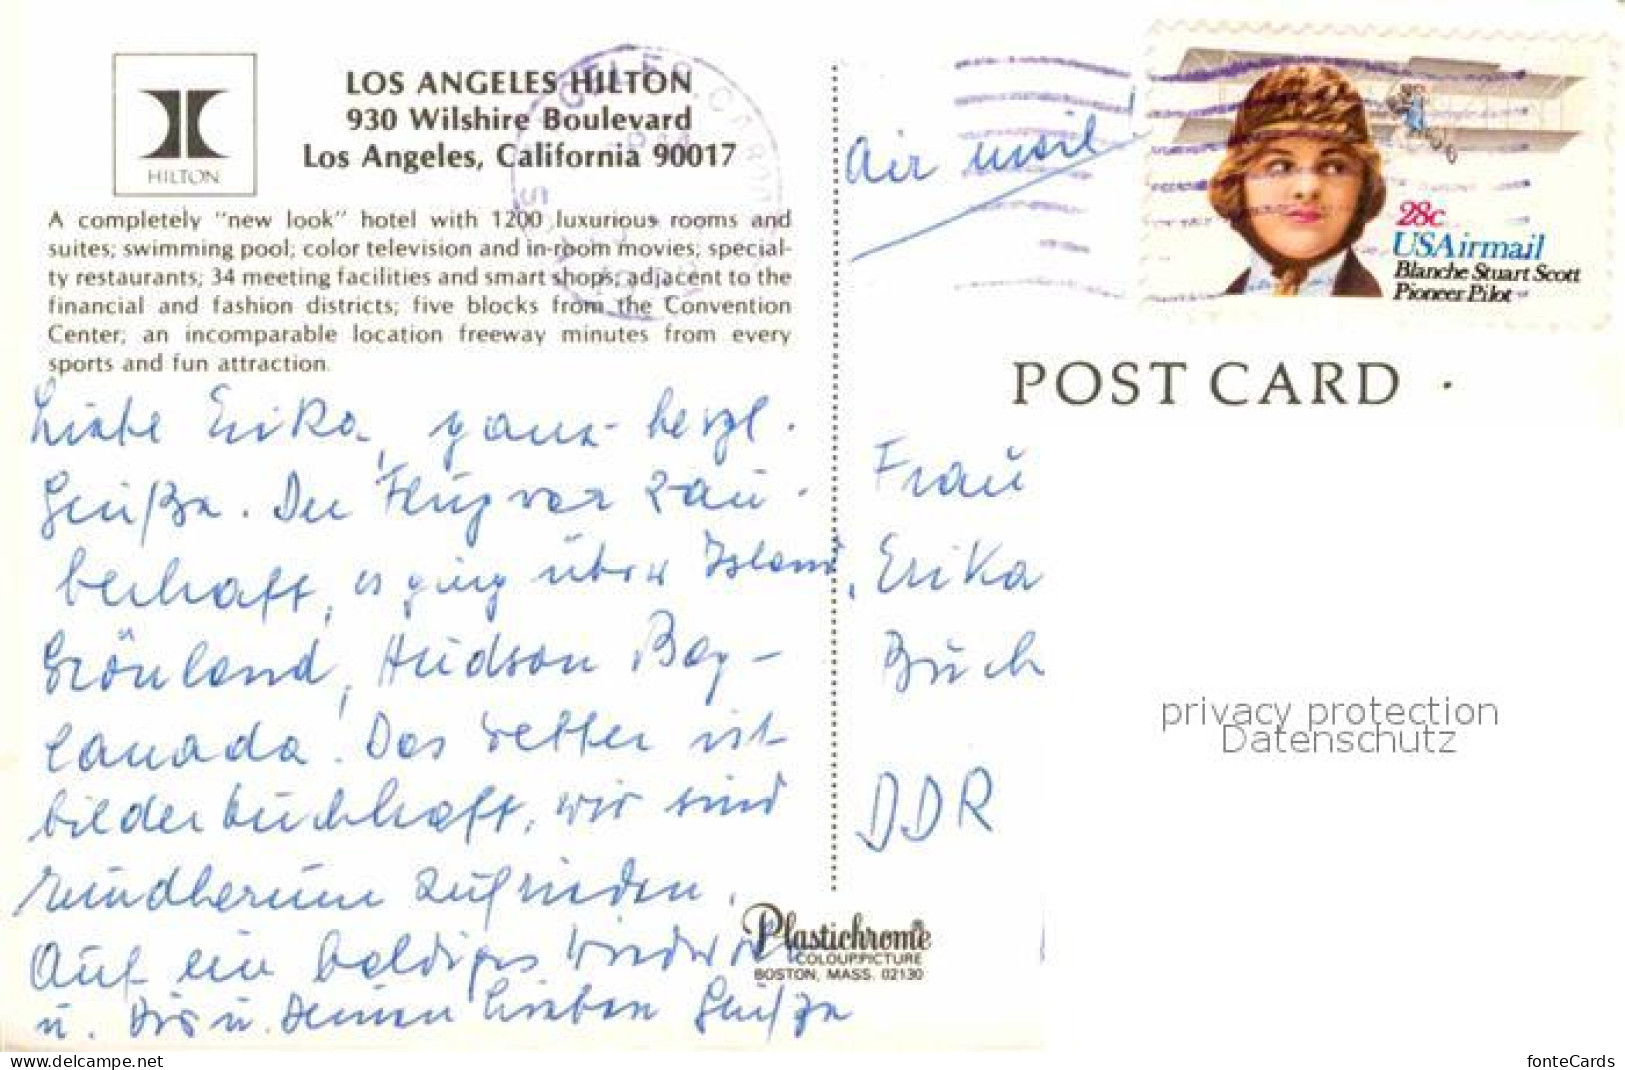 HILTON
LOS ANGELES HILTON
930 Wilshire Boulevard
Los Angeles, California 90017
A completely "new look" hotel with 1200 luxurious rooms and
suites; swimming pool; color television and in-room movies; special-
ty restaurants; 34 meeting facilities and smart shops; adjacent to the
financial and fashion districts; five blocks from the Convention
Center; an incomparable location freeway minutes from every
sports and fun attraction.
Liebe Erika, ganz herzl.
Grüße. Der Flug war zau-
berhaft, es ging über Island,
Grönland, Hudson Bay-
Canada. Das Wetter ist
bilderbuchhaft, wir sind
rundherum zufrieden.
Auf ein baldiges
u. Dir u. Deinen Lieben Grüße
Air mail
28c
USAirmail
Blanche Stuart Scott
Pioneer Pilot
POST CARD
Frau
Erika
Buch
DDR
privacy protection
Datenschutz
Plastichrome®
COLOURPICTURE
BOSTON, MASS. 02130
www.delcampe.net
fonteCards